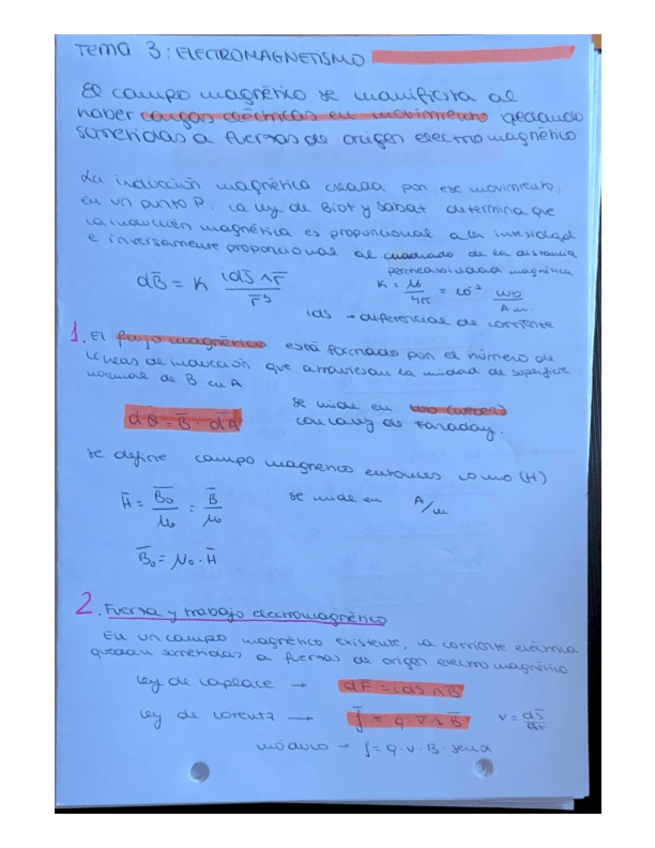 Tema 3: ELECTROMAGNETISMO
El campo magnético se manifiesta al
haber cargas eléctricas en movimiento quedando
sometidas a fuerzas de origen electromagnético
La inducción magnética creada por ese movimiento,
en un punto P. La ley de Biot y Sabat determina que
la inducción magnética es proporcional a la intesidad
e inversamente proporcional al cuadrado de la distancia
permeabilidad magnética
dB̅ = K (ids̅ ∧ r̅) / r̅³
K = μ₀/4π = 10⁻⁷ Wb/A·m
ids → diferencial de corriente
1. El flujo magnético está formado por el número de
líneas de inducción que atraviesan la unidad de superficie
normal de B en A
dΦ = B̅ · dA̅
se mide en Wb (weber)
con la ley de Faraday.
se define campo magnético entonces como (H)
H̅ = B̅₀/μ₀ = B̅/μ₀
se mide en A/m
B̅₀ = μ₀ · H̅
2. Fuerza y trabajo electromagnético
En un campo magnético existente, la corriente eléctrica
quedan sometidas a fuerzas de origen electromagnético
ley de Laplace → dF = ids ∧ B
ley de Lorentz → f̅ = q · v̅ ∧ B̅ v = ds̅/dt
módulo → f = q · v · B · senα